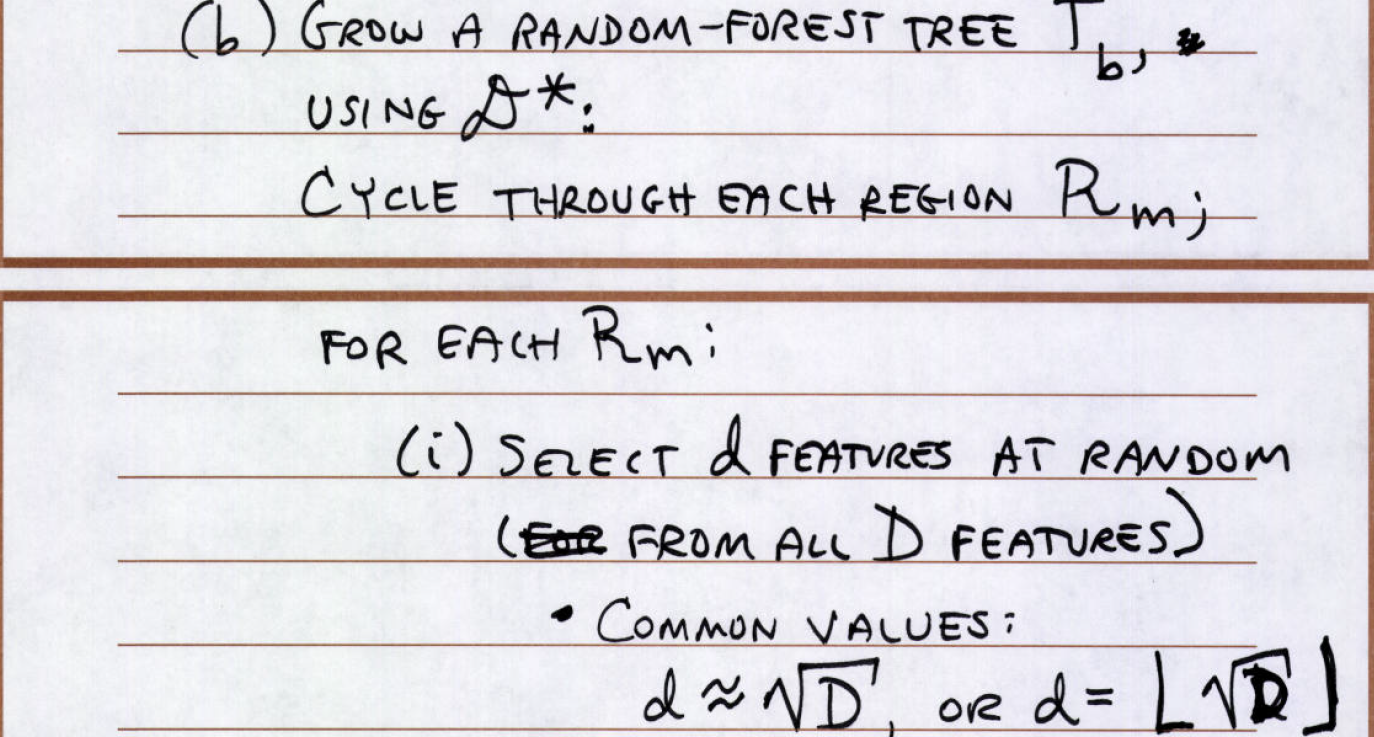 (b) GROW A RANDOM-FOREST TREE T_b,
USING 𝒟*:
CYCLE THROUGH EACH REGION R_m;
FOR EACH R_m:
(i) SELECT d FEATURES AT RANDOM
(FROM ALL D FEATURES)
• COMMON VALUES:
d ≈ √D, OR d = ⌊√D⌋